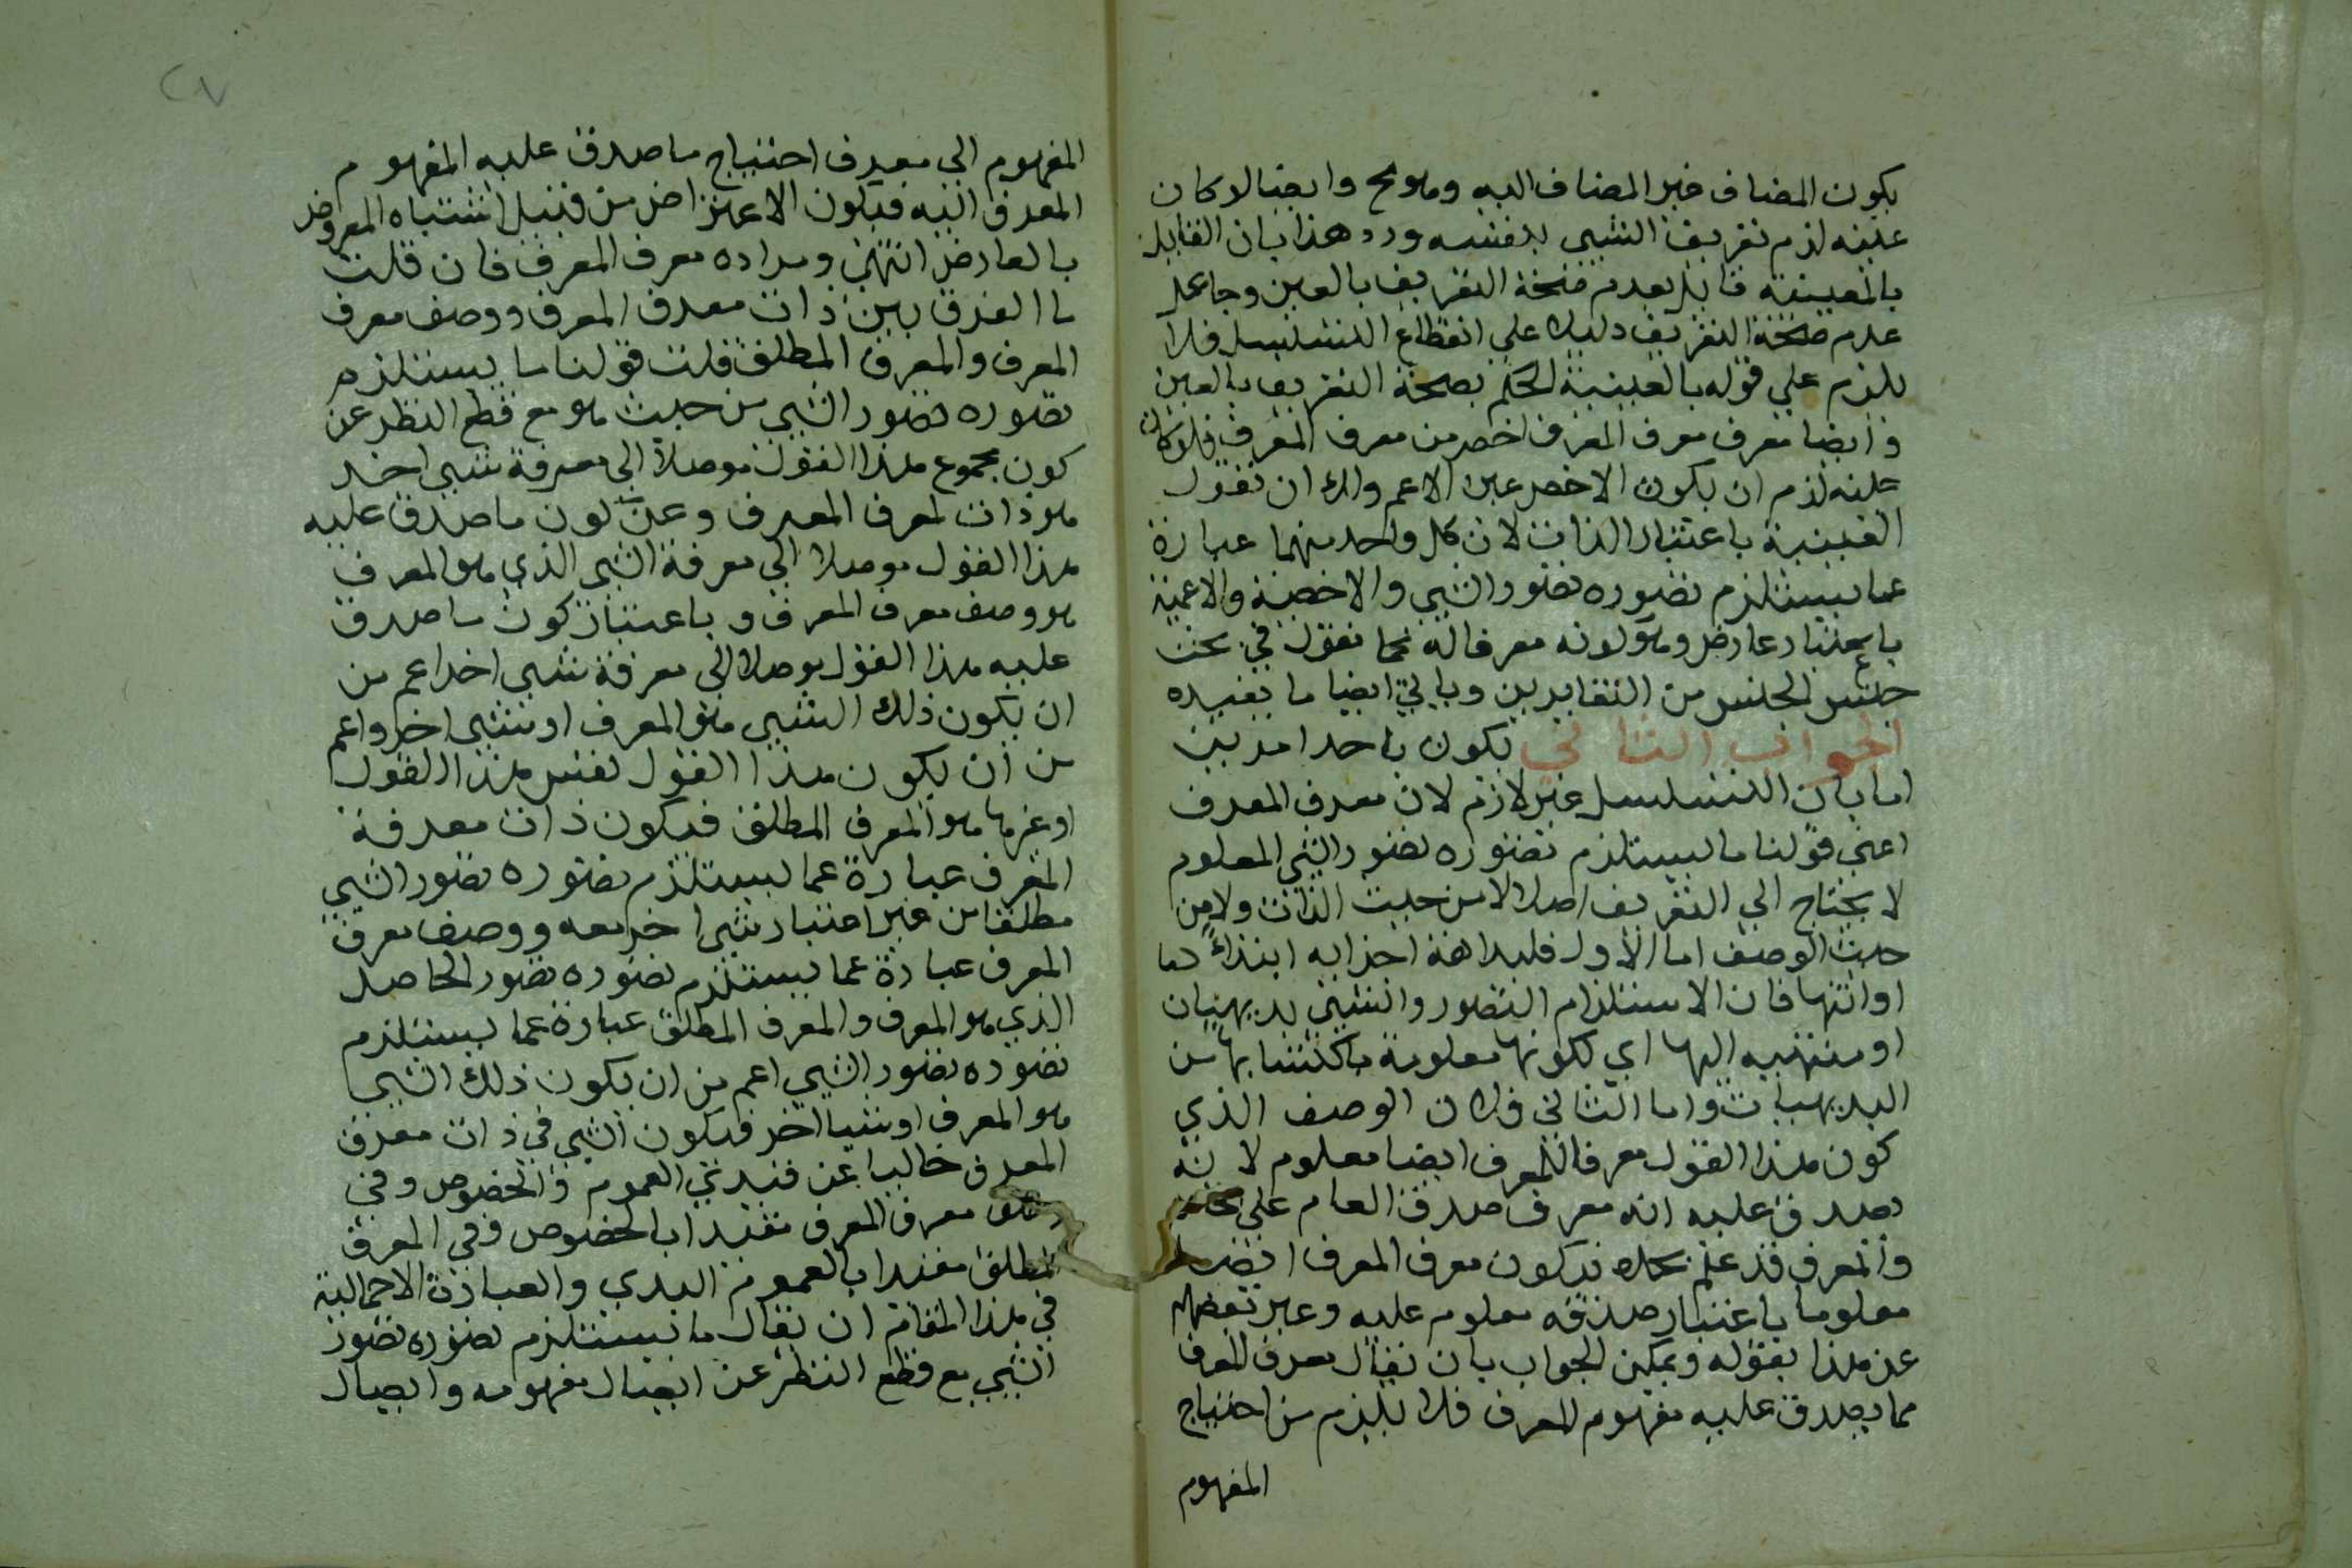 يكون المضاف غير المضاف اليه وهو مح وايضا لو كان
عينه لزم تعريف الشيء بنفسه ورد هذا بان القايل
بالعينية قايل بعدم صحة التعريف بالعين وجاعل
عدم صحة التعريف دليلا على انقطاع التسلسل فلا
يلزم على قوله بالعينية الحكم بصحة التعريف بالعين
وايضا معرف معرف المعرف اخص من معرف المعرف فلو كان
عينه لزم ان يكون الاخص عين الاعم ولك ان تقول
العينية باعتبار الذات لان كل واحد منهما عبارة
عما يستلزم تصوره تصور الشي والاخصية والاعمية
باعتبار عارض وهو كونه معرفا له كما نقول في بحث
جنس الجنس من التقابرين وياتي ايضا ما يفيده
الجواب الثاني يكون باحد امرين
اما بان التسلسل غير لازم لان معرف المعرف
اعني قولنا ما يستلزم تصوره تصور الشي المعلوم
لا يحتاج الى التعريف اصلا لا من حيث الذات ولا من
حيث الوصف اما الاول فلبداهة اجزايه ابتداء
او انتها فان الاستلزام التصور والشي بديهيان
او منتهيه اليها اي لكونها معلومة باكتسابها من
البديهيات واما الثاني فلان الوصف الذي
كون هذا القول معرفا للمعرف ايضا معلوم لانه
يصدق عليه انه معرف صدق العام على
والمعرف قد علم بحده فيكون معرف المعرف ايضا
معلوما باعتبار صدقه معلوم عليه وعبر بعضهم
عن هذا بقوله ويمكن الجواب بان نقال معرف المعرف
مما يصدق عليه مفهوم المعرف فلا يلزم من احتياج
المفهوم
المفهوم الى معرف احتياج ما صدق عليه المفهوم
المعرف اليه فيكون الاعتراض من قبيل اشتباه المعروض
بالعارض انتهى ومراده معرف المعرف فان قلت
ما الفرق بين ذات معرف المعرف ووصف معرف
المعرف والمعرف المطلق قلت قولنا ما يستلزم
تصوره تصور الشي من حيث هو مع قطع النظر عن
كون مجموع هذا القول موصلا الى معرفة شي اخر
هو ذات لمعرف المعرف وعن كون ما صدق عليه
هذا القول موصلا الى معرفة الشي الذي هو المعرف
هو وصف معرف المعرف وباعتبار كون ما صدق
عليه هذا القول موصلا الى معرفة شي اخر اعم من
ان يكون ذلك الشي هو المعرف او شي اخر واعم
من ان يكون هذا القول نفس هذا القول
او غيرها هو المعرف المطلق فيكون ذات معرفة
المعرف عبارة عما يستلزم تصوره تصور الشي
مطلقا من غير اعتبار شي اخر معه ووصف معرف
المعرف عبارة عما يستلزم تصوره تصور الحاصل
الذي هو المعرف والمعرف المطلق عبارة عما يستلزم
تصوره تصور الشي اعم من ان يكون ذلك الشي
هو المعرف او شيا اخر فيكون الشي في ذات معرف
المعرف خاليا عن قيدي العموم والخصوص وفي
وصف معرف المعرف مقيدا بالخصوص وفي المعرف
المطلق مقيدا بالعموم البدي والعبارة الاجمالية
في هذا المقام ان نقال ما يستلزم تصوره تصور
الشي مع قطع النظر عن ايصال مفهومه وايصال